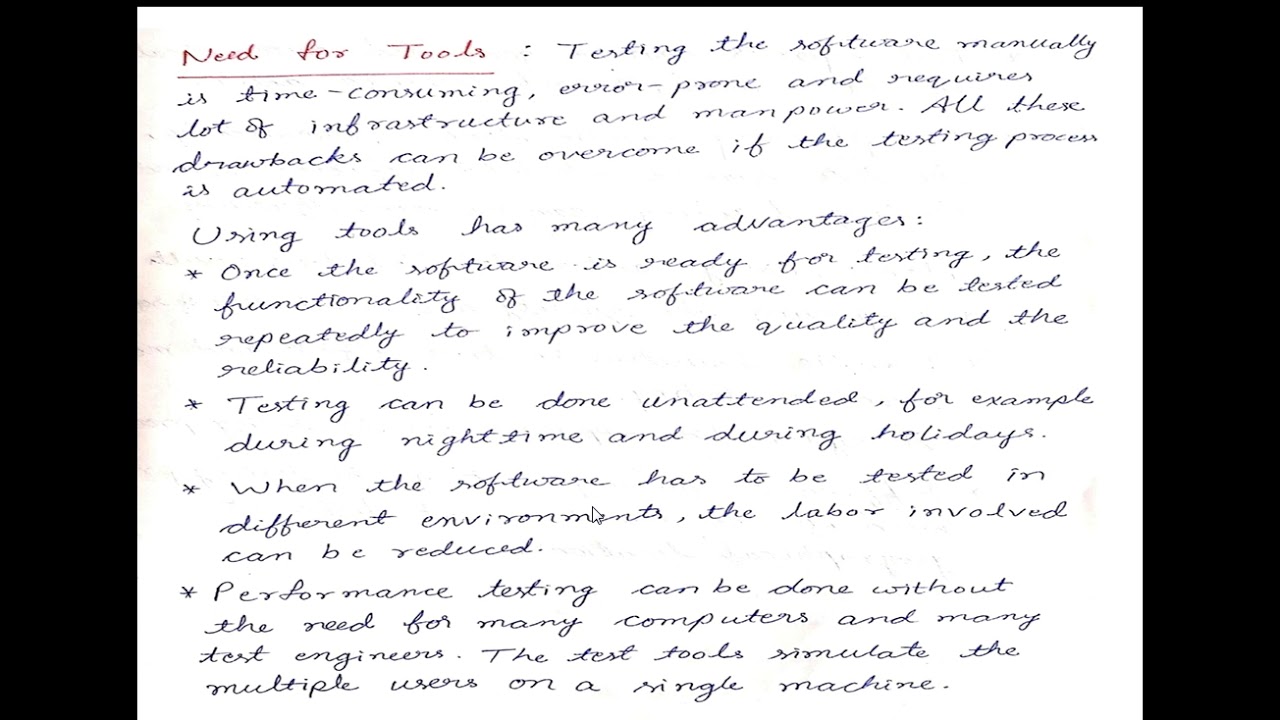 Need for Tools : Testing the software manually
is time-consuming, error-prone and requires
lot of infrastructure and manpower. All these
drawbacks can be overcome if the testing process
is automated.
Using tools has many advantages:
* Once the software is ready for testing, the
functionality of the software can be tested
repeatedly to improve the quality and the
reliability.
* Testing can be done unattended, for example
during nighttime and during holidays.
* When the software has to be tested in
different environments, the labor involved
can be reduced.
* Performance testing can be done without
the need for many computers and many
test engineers. The test tools simulate the
multiple users on a single machine.